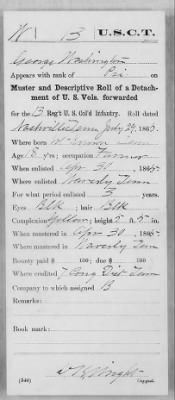 W 13 U.S.C.T.
George Washington
Appears with rank of Pri on
Muster and Descriptive Roll of a Detach-
ment of U. S. Vols. forwarded
for the 13 Reg't U. S. Col'd Infantry. Roll dated
Nashville Tenn July 29, 1865.
Where born
Age y'rs; occupation Farmer
When enlisted Apr 30, 1865.
Where enlisted Waverly Tenn
For what period enlisted 3 years.
Eyes Blk; hair Blk
Complexion Yellow; height 5 ft. 5 in.
When mustered in Apr 30, 1865.
Where mustered in Waverly Ten
Bounty paid $ 100; due $ 100
Where credited 7 Cong Dist Tenn
Company to which assigned B
Remarks:
Book mark:
Wright
(340) Copyist.